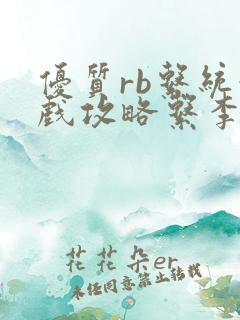 優質rb繫統
戲攻略繫李
花花朵er
未經同意禁止轉載